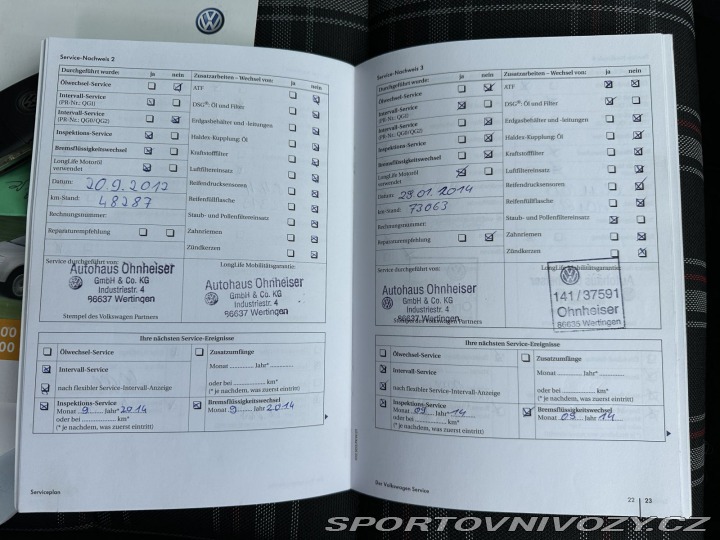 Service-Nachweis 2
Durchgeführt wurde: ja nein Zusatzarbeiten – Wechsel von: ja nein
Ölwechsel-Service ATF
Intervall-Service
(PR-Nr.: QG1) DSG®: Öl und Filter
Intervall-Service
(PR-Nr.: QG0/QG2) Erdgasbehälter und -leitungen
Inspektions-Service Haldex-Kupplung: Öl
Bremsflüssigkeitswechsel Kraftstofffilter
LongLife Motoröl
verwendet Luftfiltereinsatz
Datum: 20.9.2012 Reifendrucksensoren
km-Stand: 48287 Reifenfüllflasche
Rechnungsnummer: Staub- und Pollenfiltereinsatz
Reparaturempfehlung Zahnriemen
Zündkerzen
Service durchgeführt von: LongLife Mobilitätsgarantie:
Autohaus Ohnheiser
GmbH & Co. KG
Industriestr. 4
86637 Wertingen
Autohaus Ohnheiser
GmbH & Co. KG
Industriestr. 4
86637 Wertingen
Stempel des Volkswagen Partners
Ihre nächsten Service-Ereignisse
Ölwechsel-Service Zusatzumfänge
Intervall-Service Monat Jahr*
nach flexibler Service-Intervall-Anzeige oder bei km*
(* je nachdem, was zuerst eintritt)
Inspektions-Service Bremsflüssigkeitswechsel
Monat 9 Jahr 2014 Monat 9 Jahr 2014
oder bei km*
(* je nachdem, was zuerst eintritt)
Serviceplan
Service-Nachweis 3
Durchgeführt wurde: ja nein Zusatzarbeiten – Wechsel von: ja nein
Ölwechsel-Service ATF
Intervall-Service
(PR-Nr.: QG1) DSG®: Öl und Filter
Intervall-Service
(PR-Nr.: QG0/QG2) Erdgasbehälter und -leitungen
Inspektions-Service Haldex-Kupplung: Öl
Bremsflüssigkeitswechsel Kraftstofffilter
LongLife Motoröl
verwendet Luftfiltereinsatz
Datum: 29.01.2014 Reifendrucksensoren
km-Stand: 73063 Reifenfüllflasche
Rechnungsnummer: Staub- und Pollenfiltereinsatz
Reparaturempfehlung Zahnriemen
Zündkerzen
Service durchgeführt von: LongLife Mobilitätsgarantie:
Autohaus Ohnheiser
GmbH & Co. KG
Industriestr. 4
86637 Wertingen
141/37591
Ohnheiser
86635 Wertingen
Stempel des Volkswagen Partners
Ihre nächsten Service-Ereignisse
Ölwechsel-Service Zusatzumfänge
Intervall-Service Monat Jahr*
nach flexibler Service-Intervall-Anzeige oder bei km*
(* je nachdem, was zuerst eintritt)
Inspektions-Service Bremsflüssigkeitswechsel
Monat 09 Jahr 14 Monat 09 Jahr 14
oder bei km*
(* je nachdem, was zuerst eintritt)
Der Volkswagen Service
22 23
00
00
SPORTOVNIVOZY.CZ